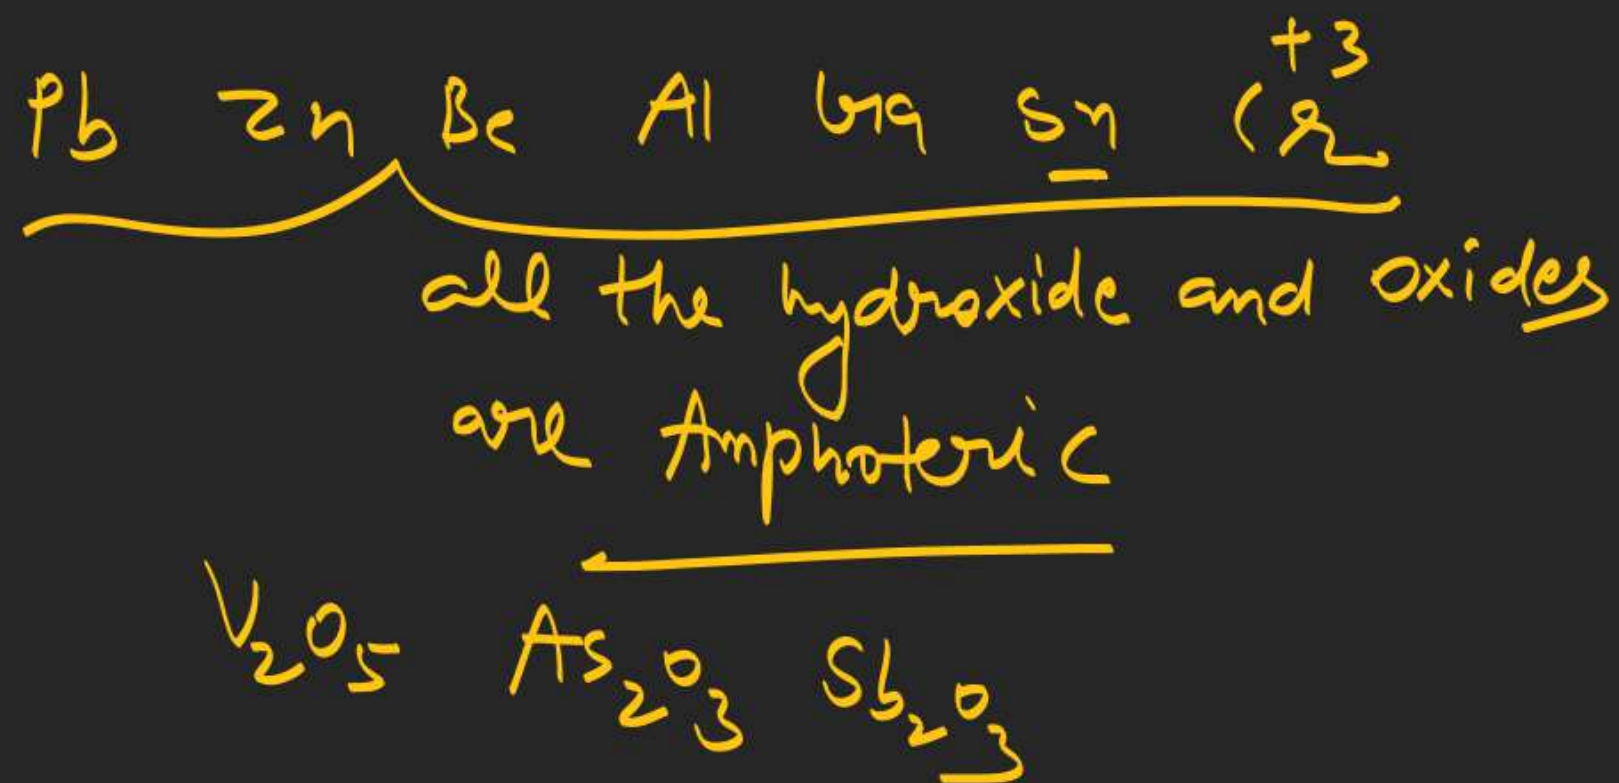 Pb Zn Be Al Ga Sn Cr+3
all the hydroxide and oxides
are Amphoteric
V2O5 As2O3 Sb2O3